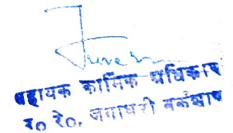 सहायक कार्मिक अधिकारी
उ० रे०, जगाधरी वर्कशाप